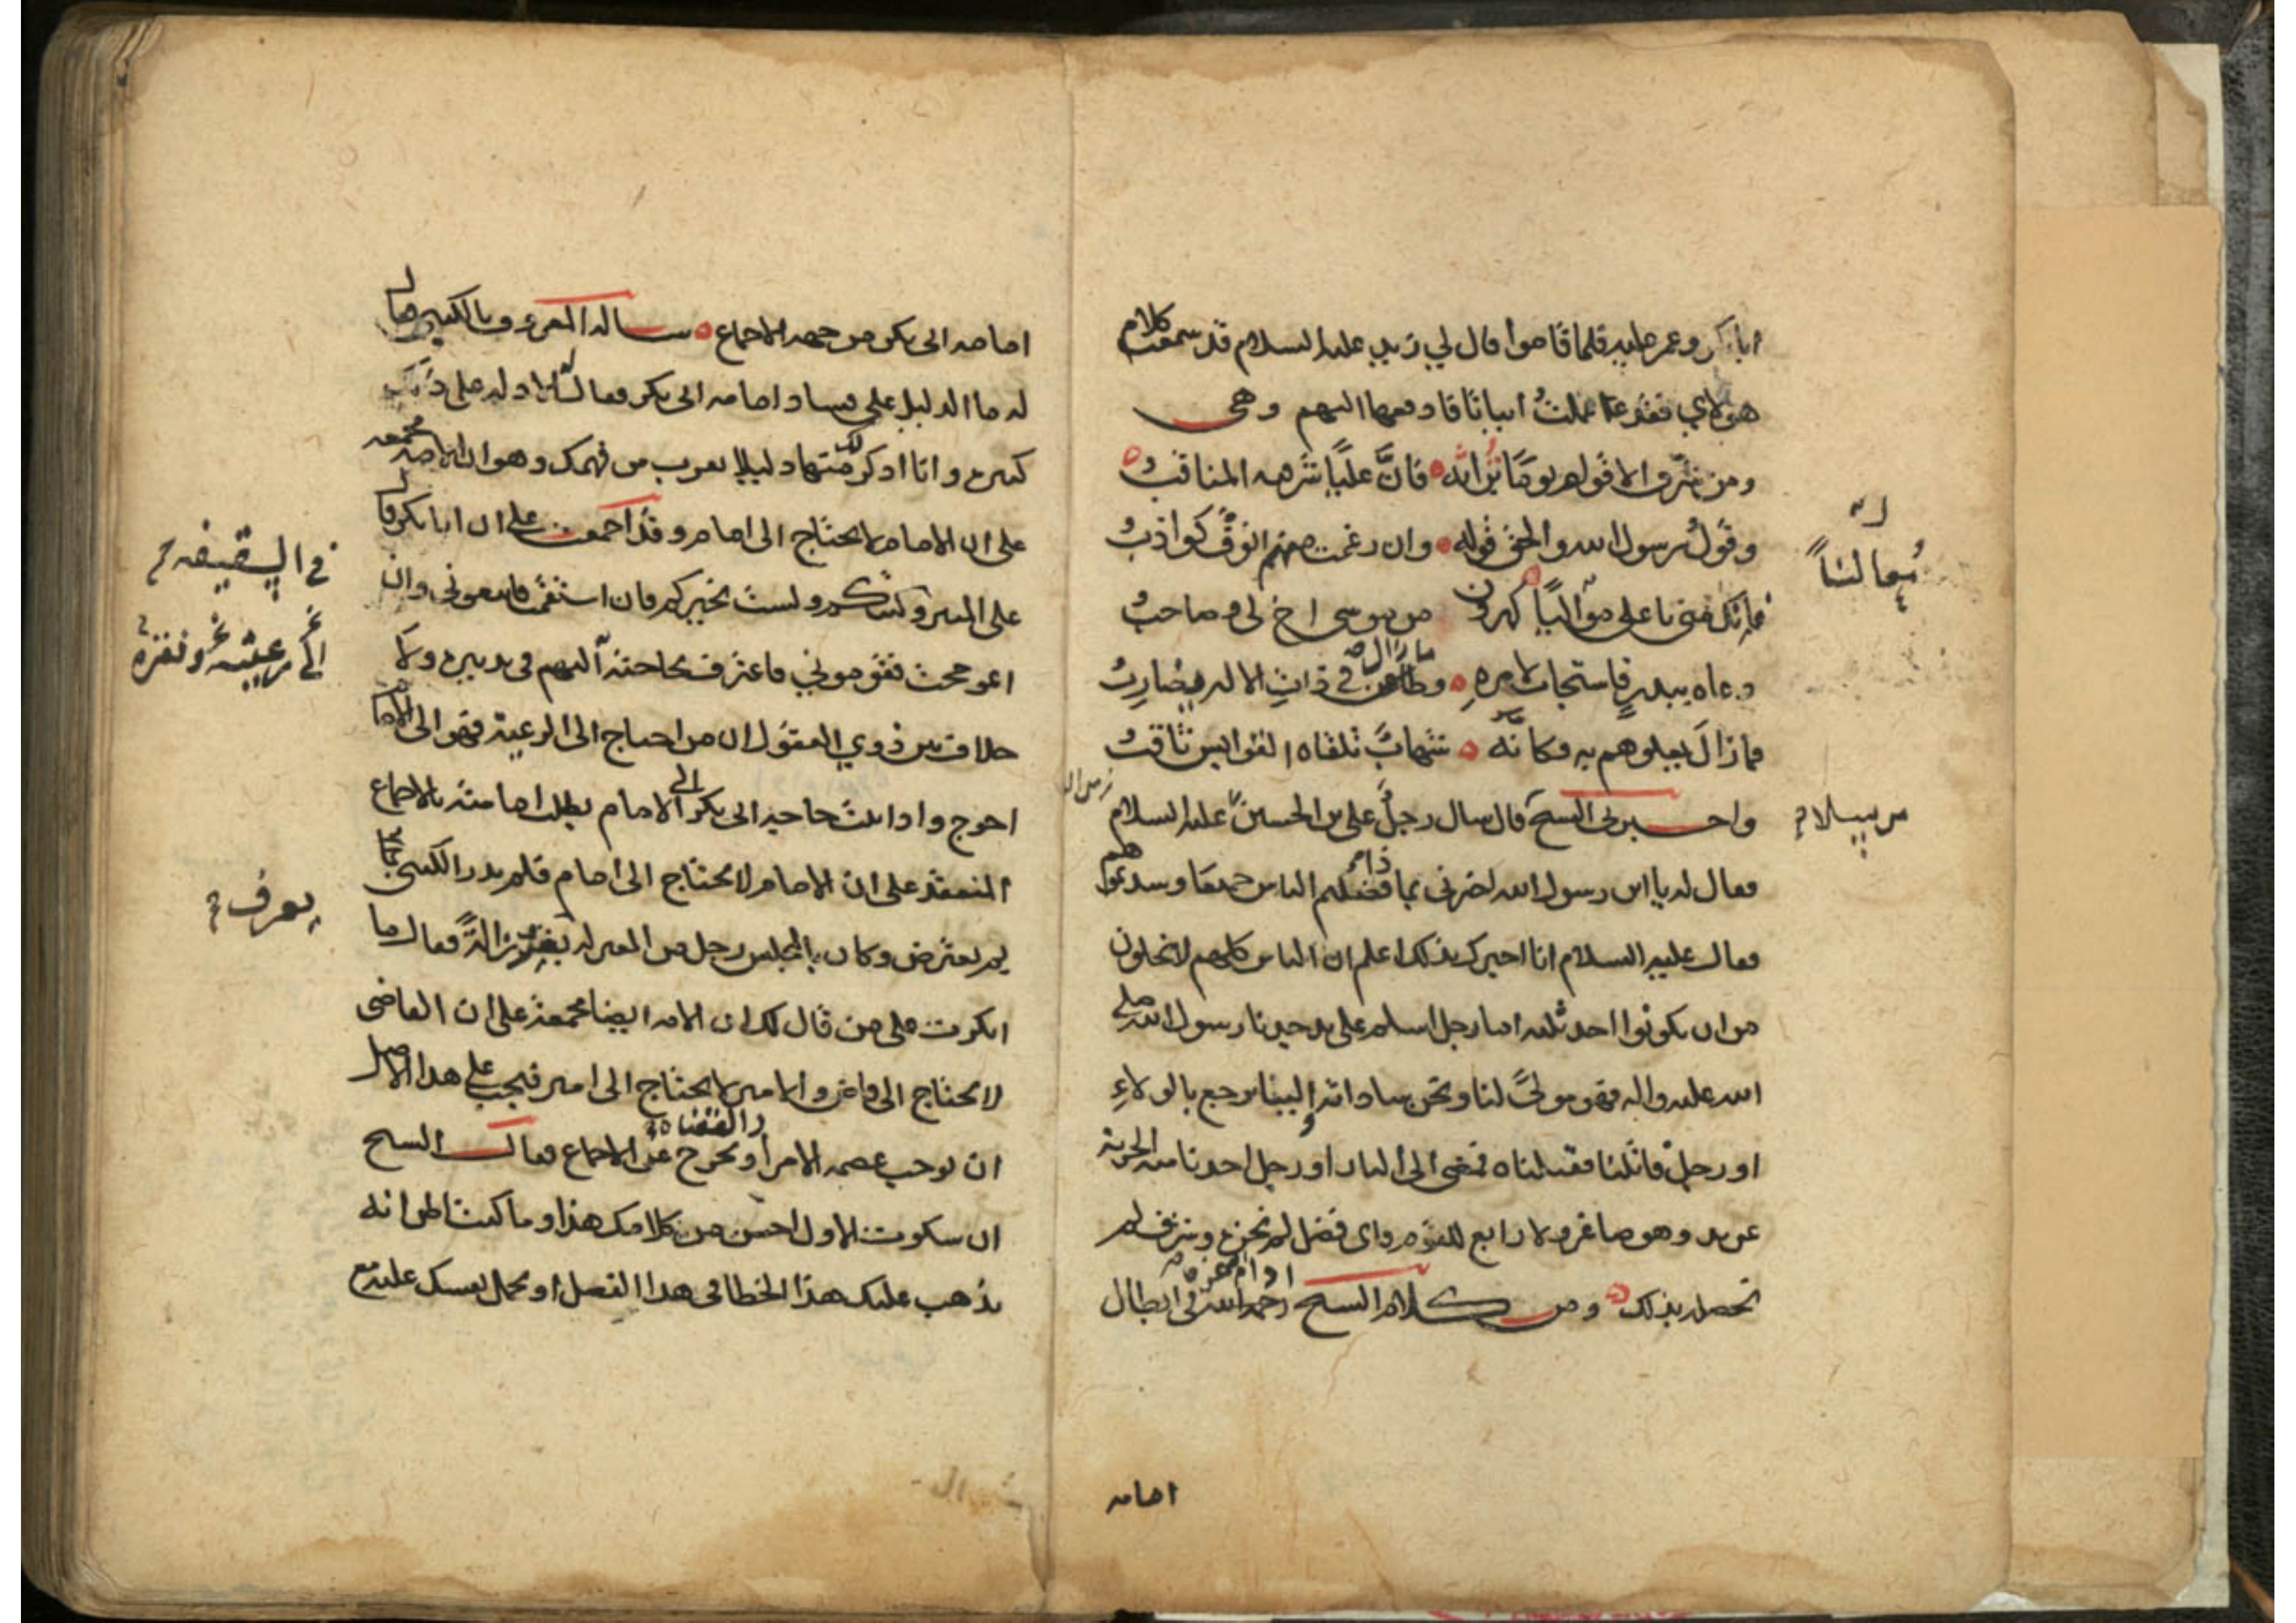 ابا بكر وعمر عليه فلما قاموا قال لي زيد عليه السلام قد سمعت كلام
هولاي فقد عملت ابياتا فادفعها اليهم وهي
ومن شرف الاقوام يوما برأيه فان عليا شرفه المناقب
وقول رسول الله والحق قوله وان رغمت منهم انوف كواذب
فانك مني يا علي معالنا كهرون من موسى اخ لي وصاحب
دعاه ببدر فاستجاب لامره وما زال في ذات الاله يضارب
فما زال يعلوهم به وكانه شهاب تلقاه القوابس ثاقب
واخبرني الشيخ قال سال رجل علي بن الحسين عليه السلام
فقال له يا ابن رسول الله اخبرني بماذا فضلتم الناس جميعا وسدتموهم
فقال عليه السلام انا اخبرك بذلك اعلم ان الناس كلهم لا يخلون
من ان يكونوا احد ثلثه اما رجل اسلم على يد جدنا رسول الله صلى
الله عليه واله فهو مولى لنا ونحن ساداته والينا يرجع بالولاء
او رجل قاتلنا فقتلناه فمضى الى النار او رجل اخذنا منه الجزية
عن يد وهو صاغر ولا رابع للقوم فاي فضل لم نحزه وشرف لم
نحصله بذلك ومن كلام الشيخ ادام الله عزه في ابطال
امامه
امامه ابي بكر من جهه الاجماع ساله المعروف بالكتبي فقال
له ما الدليل على فساد امامه ابي بكر فقال له الادله على ذلك
كثيره وانا اذكر لك منها دليلا يقرب من فهمك وهو ان الامه مجمعه
على ان الامام لا يحتاج الى امام وقد اجمعت على ان ابا بكر قال
على المنبر وليتكم ولست بخيركم فان استقمت فاتبعوني وان
اعوججت فقوموني فاعترف بحاجته اليهم في تدبيره ولا
خلاف بين ذوي العقول ان من احتاج الى الرعية فهو الى الامام
احوج واذا ثبت حاجه ابي بكر الى الامام بطلت امامته بالاجماع
المنعقد على ان الامام لا يحتاج الى امام فلم يدر الكتبي بما
يعترض وكان بالمجلس رجل من المعتزله يعرف بعرزاله فقال ما
انكرت على من قال لك ان الامه ايضا مجمعة على ان القاضي
لا يحتاج الى قاض والامير لا يحتاج الى امير فيجب على هذا الاصل
ان توجب عصمه الامراء والقضاه او تخرج عن الاجماع فقال الشيخ
ان سكوت الاول احسن من كلامك هذا وما كنت اظن انه
يذهب عليك هذا الخطا في هذا الفصل او تحمل نفسك عليه مع
في السقيفه
الى رعيته
يعرف